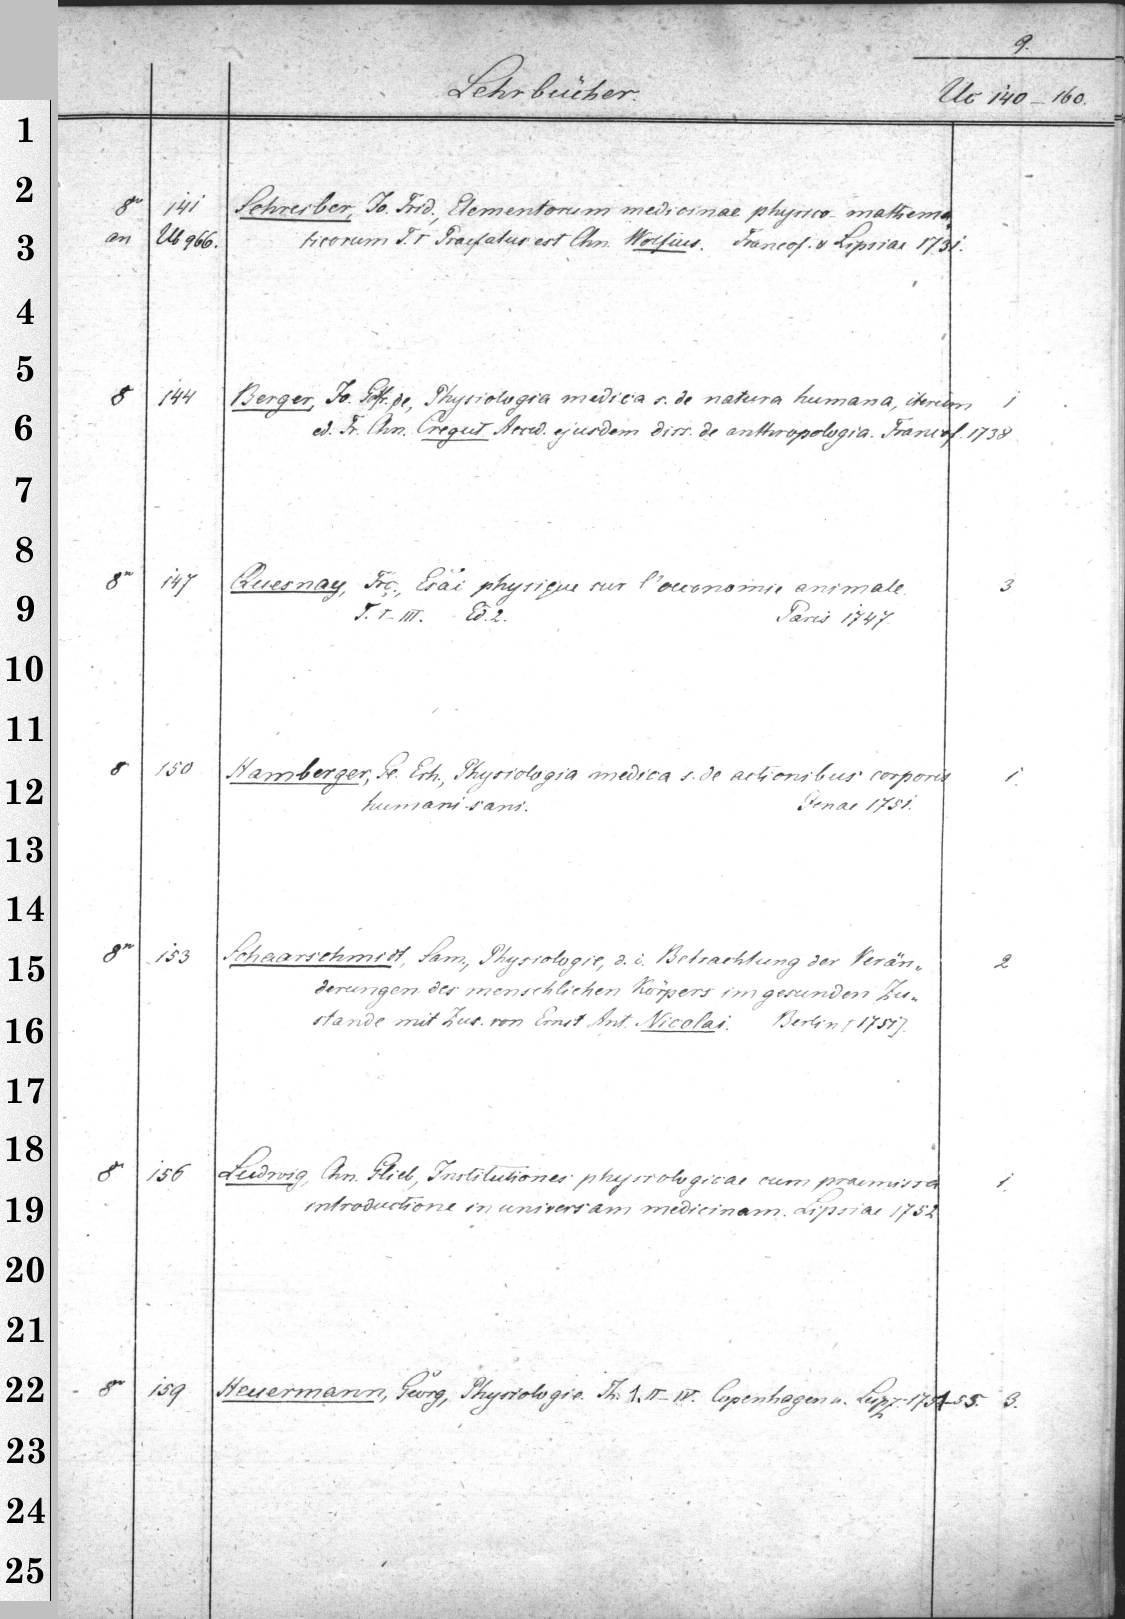 9.
Lehrbücher. Uc 140-160.
1
2
8º 141 Schreiber, Jo. Frid., Elementorum medicinae physico-mathema-
3
an Ub 966. ticorum T. I Praefatus est Chn. Wolfius. Francof. & Lipsiae 1731.
4
5
8 144 Berger, Jo. Gfr. de, Physiologia medica s. de natura humana, iterum 1
6
ed. Fr. Chn. Cregut Acced. ejusdem diss. de anthropologia. Francof. 1738
7
8
8º 147 Quesnay, Frç., Esai physique sur l'oeconomie animale. 3
9
T. I-III. Ed. 2. Paris 1747.
10
11
8 150 Hamberger, Ge. Erh., Physiologia medica s. de actionibus corporis 1.
12
humani sani. Jenae 1751.
13
14
8º 153 Schaarschmidt, Sam., Physiologie, d. i. Betrachtung der Verän- 2
15
derungen des menschlichen Körpers im gesunden Zu-
16
stande mit Zus. von Ernst Ant. Nicolai. Berlin [1751].
17
18
8º 156 Ludwig, Chn. Glieb, Institutiones physiologicae cum praemissa 1.
19
introductione in universam medicinam. Lipsiae 1752
20
21
22
8º 159 Heuermann, Georg, Physiologie. Th. 1. II-IV. Copenhagen u. Leipz. 1751-55. 3.
23
24
25